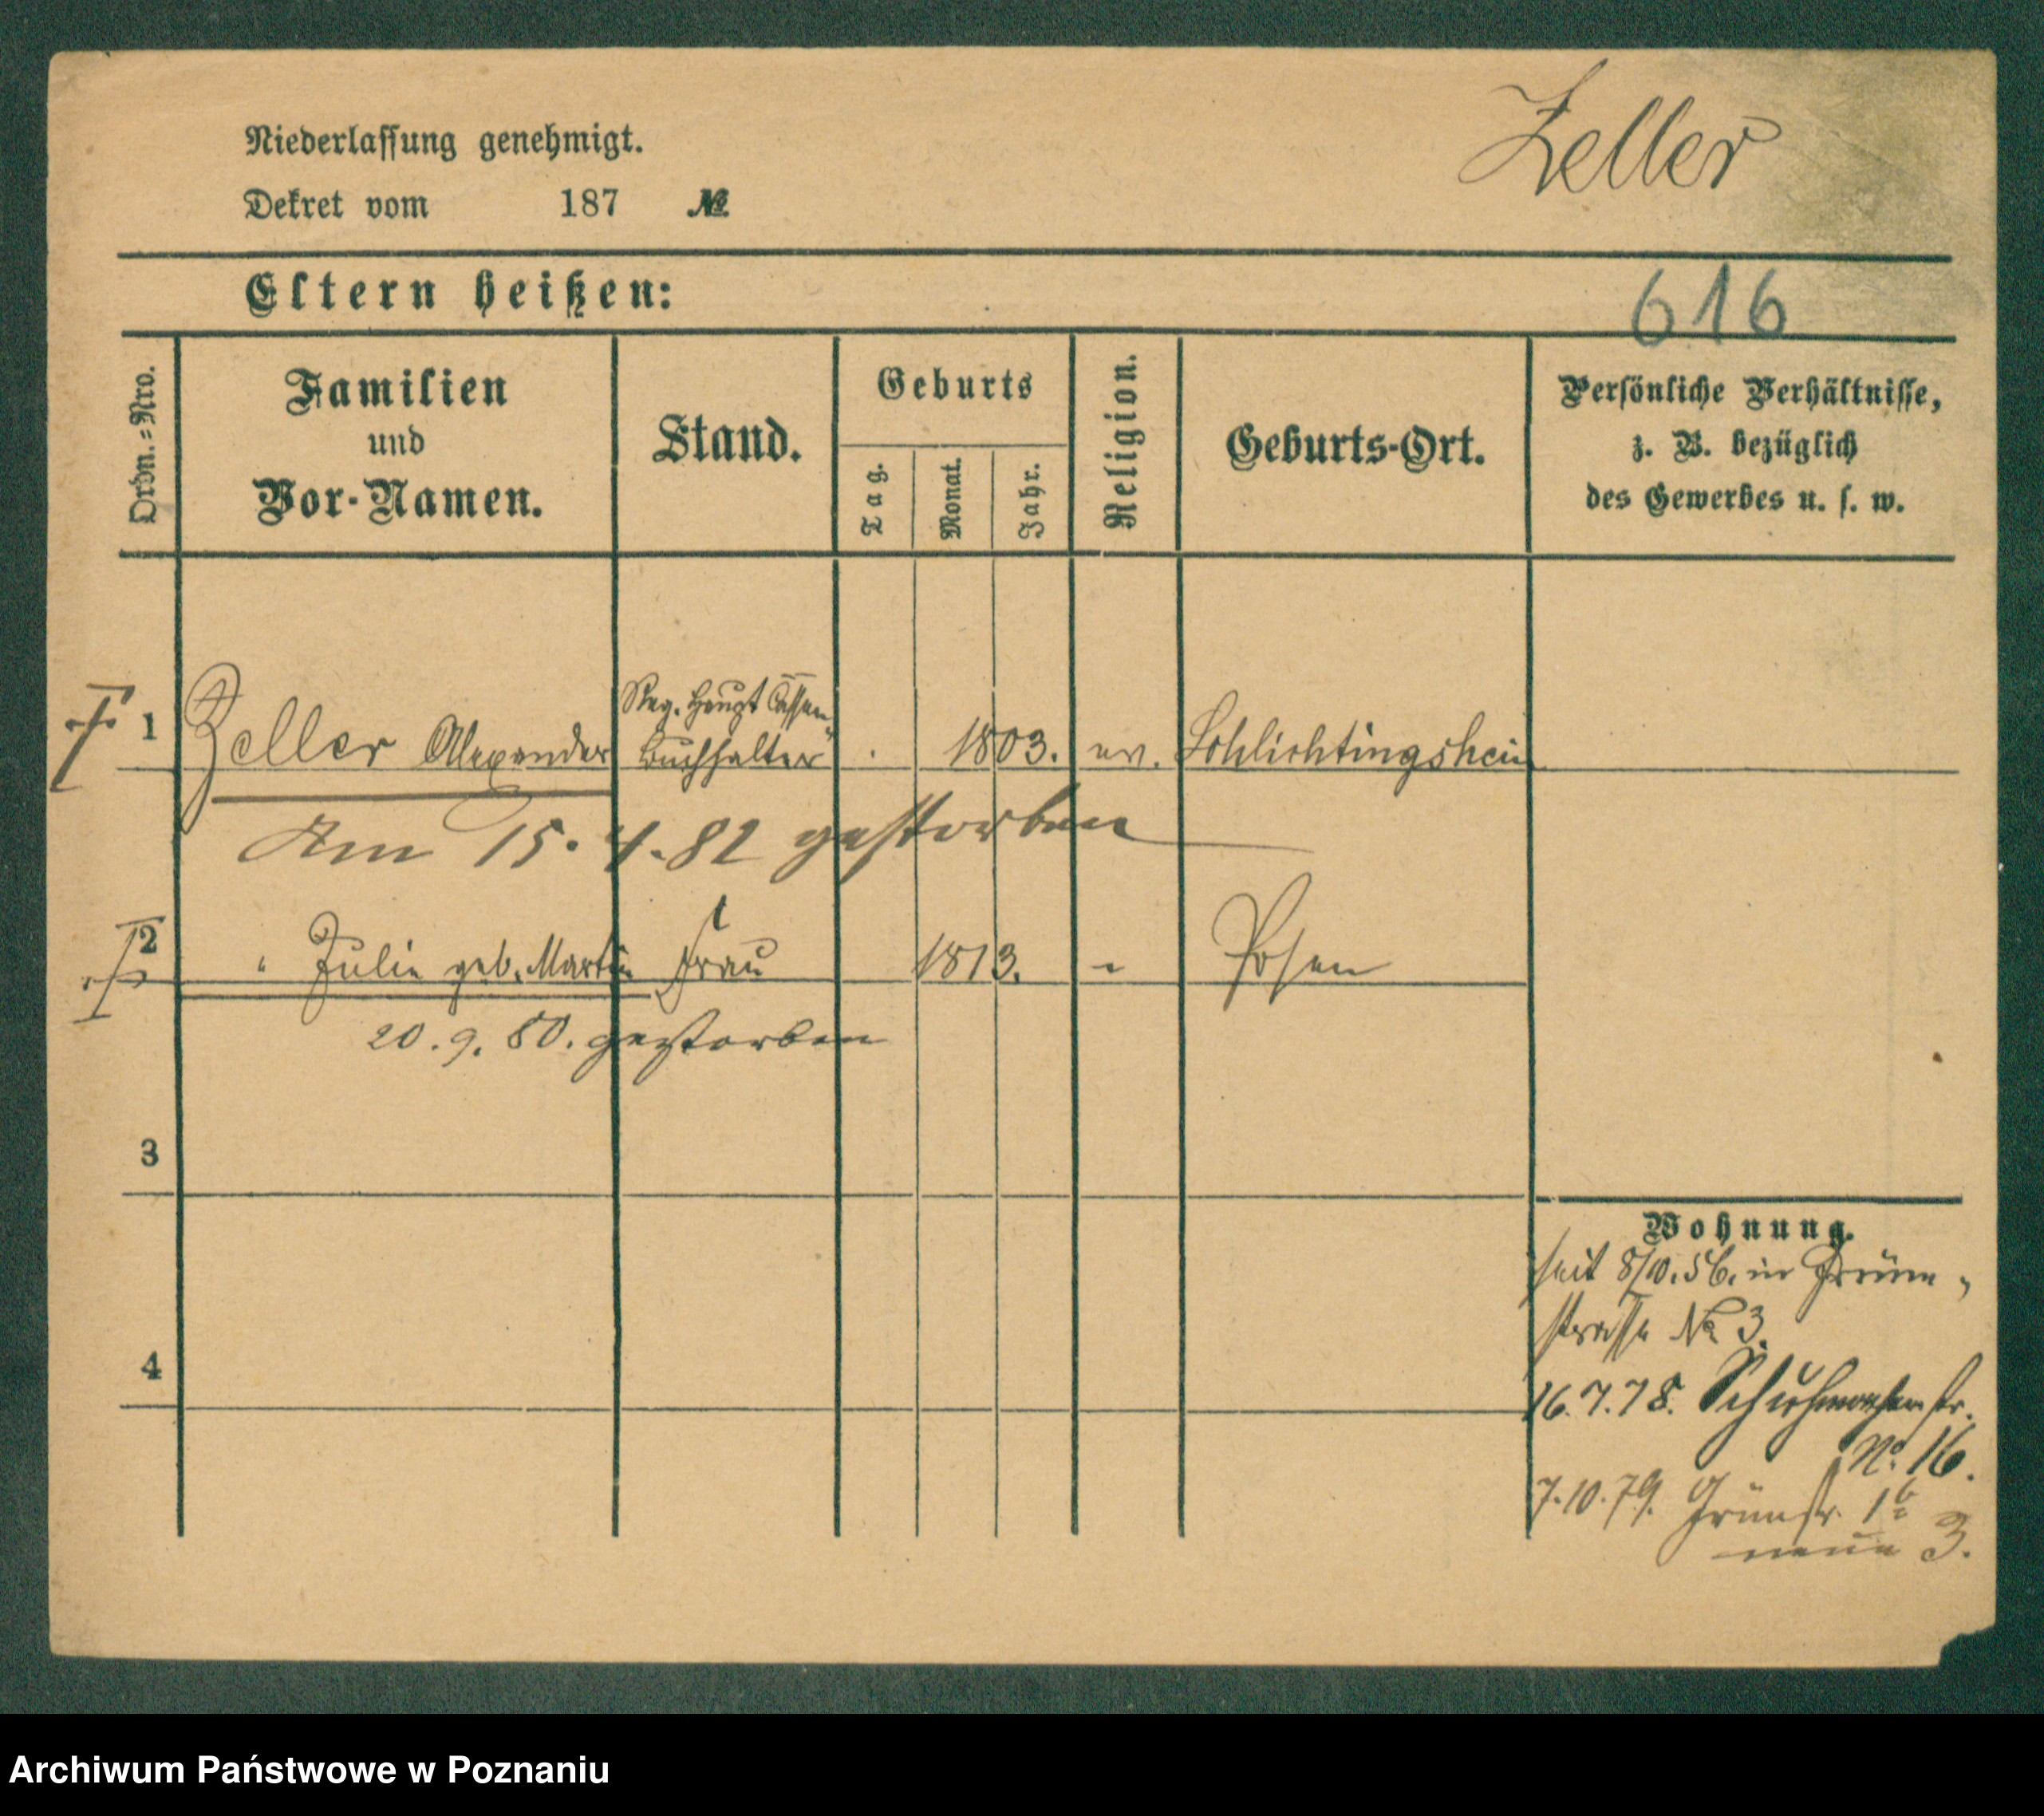 Zeller
Niederlassung genehmigt.
Dekret vom 187 №
Eltern heißen:
616
Ordn.=Nro.
Familien
und
Vor-Namen.
Stand.
Geburts
Tag.
Monat.
Jahr.
Religion.
Geburts-Ort.
Persönliche Verhältnisse,
z. B. bezüglich
des Gewerbes u. s. w.
1 Zeller Alexander Reg. Haupt Cassen Buchhalter 1803. ev. Schlichtingsheim
Am 15. 4. 82 gestorben
2 " Julie geb. Martin Frau 1813. " Posen
20. 9. 80. gestorben
3
4
Wohnung.
seit 8/10.56. in Grün-
strasse № 3.
16.7.78. Schuhmacherstr.
No. 16.
7.10.79. Grünstr. 1b
neue 3.
Archiwum Państwowe w Poznaniu